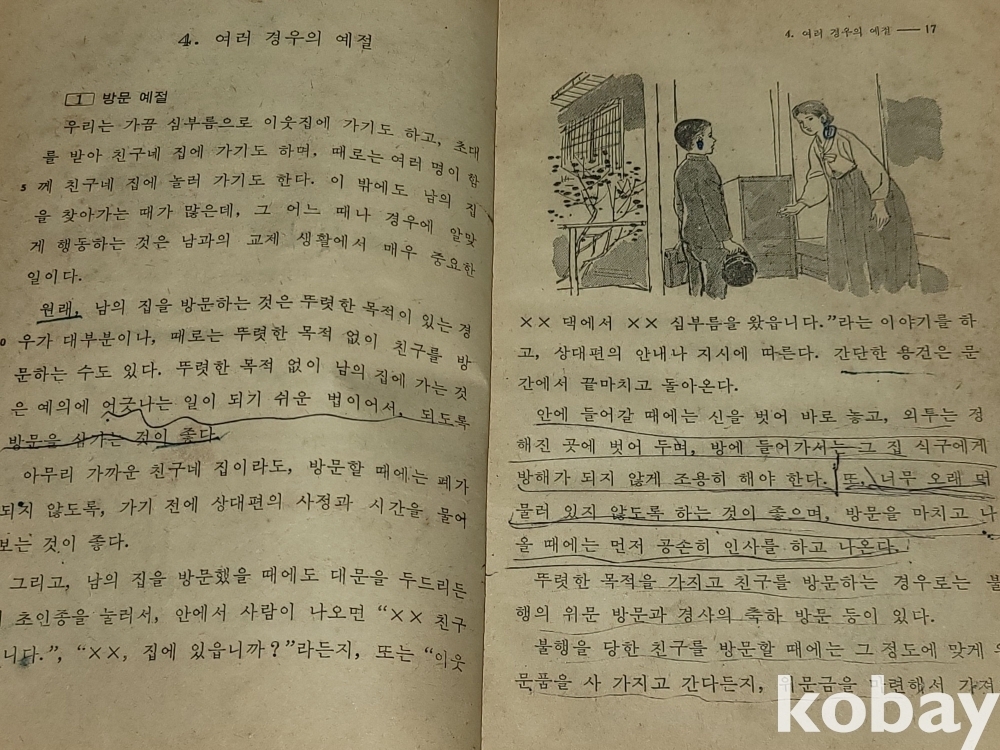 4. 여러 경우의 예절
1 방문 예절
우리는 가끔 심부름으로 이웃집에 가기도 하고, 초대
를 받아 친구네 집에 가기도 하며, 때로는 여러 명이 함
5 께 친구네 집에 놀러 가기도 한다. 이 밖에도 남의 집
을 찾아가는 때가 많은데, 그 어느 때나 경우에 알맞
게 행동하는 것은 남과의 교제 생활에서 매우 중요한
일이다.
원래, 남의 집을 방문하는 것은 뚜렷한 목적이 있는 경
0 우가 대부분이나, 때로는 뚜렷한 목적 없이 친구를 방
문하는 수도 있다. 뚜렷한 목적 없이 남의 집에 가는 것
은 예의에 어긋나는 일이 되기 쉬운 법이어서, 되도록
방문을 삼가는 것이 좋다.
아무리 가까운 친구네 집이라도, 방문할 때에는 폐가
되지 않도록, 가기 전에 상대편의 사정과 시간을 물어
보는 것이 좋다.
그리고, 남의 집을 방문했을 때에도 대문을 두드리든
초인종을 눌러서, 안에서 사람이 나오면 “×× 친구
니다.”, “××, 집에 있읍니까?”라든지, 또는 “이웃
4. 여러 경우의 예절 — 17
×× 댁에서 ×× 심부름을 왔읍니다.”라는 이야기를 하
고, 상대편의 안내나 지시에 따른다. 간단한 용건은 문
간에서 끝마치고 돌아온다.
안에 들어갈 때에는 신을 벗어 바로 놓고, 외투는 정
해진 곳에 벗어 두며, 방에 들어가서는 그 집 식구에게
방해가 되지 않게 조용히 해야 한다. 또, 너무 오래 머
물러 있지 않도록 하는 것이 좋으며, 방문을 마치고 나
올 때에는 먼저 공손히 인사를 하고 나온다.
뚜렷한 목적을 가지고 친구를 방문하는 경우로는 불
행의 위문 방문과 경사의 축하 방문 등이 있다.
불행을 당한 친구를 방문할 때에는 그 정도에 맞게 위
문품을 사 가지고 간다든지, 위문금을 마련해서 가져
kobay